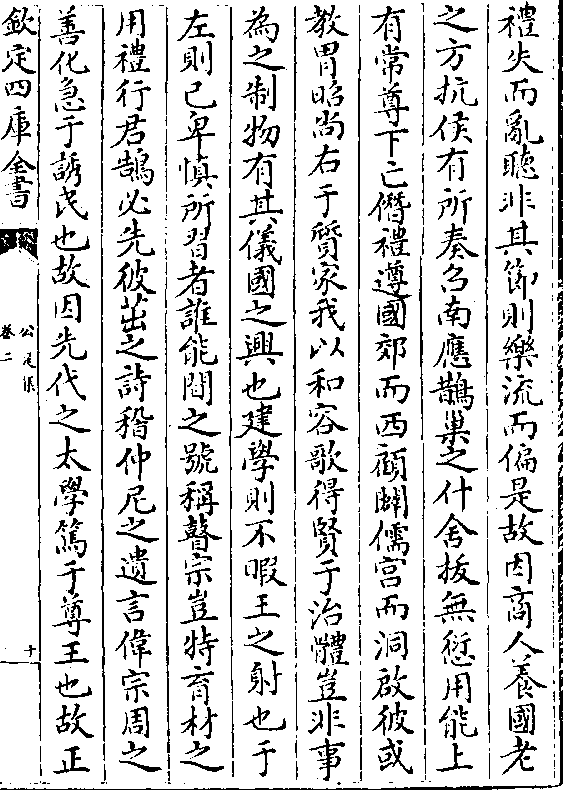 禮失而亂聽非其節則樂流而偏是故因商人養國老
之方抗侯有所奏召南應鵲巢之什舍拔無愆用能上
有常尊下亡僭禮遵國郊而西顧闢儒宮而洞啟彼或
教胄昭尚右于質家我以和容歌得賢于治體豈非事
為之制物有其儀國之興也建學則不暇王之射也于
左則已卑慎所習者誰能閒之號稱瞽宗豈特育材之
用禮行君鵠必先彼茁之詩稽仲尼之遺言偉宗周之
善化急于誘民也故因先代之太學篤于尊王也故正
欽定四庫全書
公是集
卷二
十